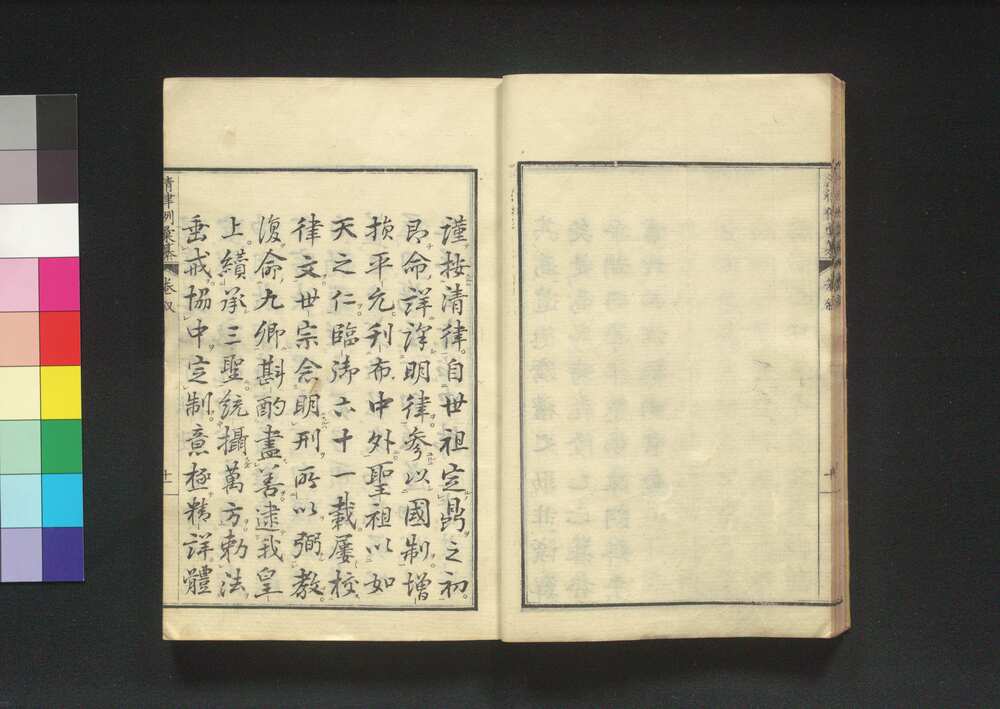 謹按清律自世祖定鼎之初
即命詳譯明律参以國制増
損平允刊布中外聖祖以如
天之仁臨御六十一載屡校
律文世宗念明刑所以弼教
復命九卿斟酌盡善逮我皇
上纘承三聖統攝萬方勅法
垂戒協中定制意極精詳體
清律例彙纂 卷 叙